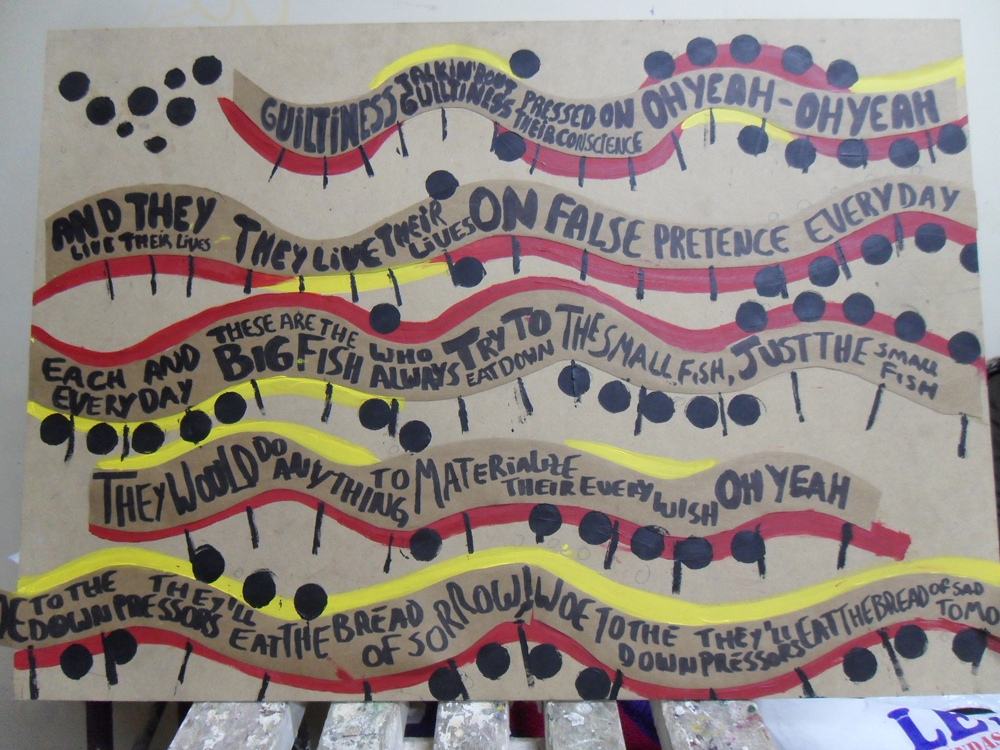 GUILTINESS TALKIN' BOUT GUILTINESS PRESSED ON THEIR CONSCIENCE OH YEAH - OH YEAH
AND THEY LIVE THEIR LIVES THEY LIVE THEIR LIVES ON FALSE PRETENCE EVERYDAY
EACH AND EVERYDAY THESE ARE THE BIG FISH WHO ALWAYS TRY TO EAT DOWN THE SMALL FISH, JUST THE SMALL FISH
THEY WOULD DO ANYTHING TO MATERIALIZE THEIR EVERY WISH OH YEAH
OE TO THE DOWNPRESSORS THEY'LL EAT THE BREAD OF SORROW! WOE TO THE DOWNPRESSORS THEY'LL EAT THE BREAD OF SAD TOMO